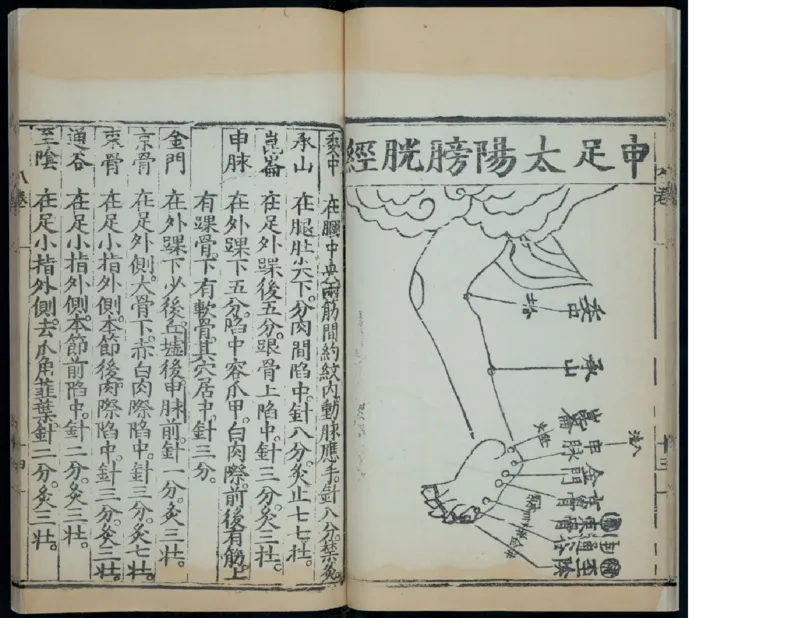 申足太陽膀胱經
委中
承山
崑崙
申脉
金門
京骨
束骨
通谷
至陰
委中 在膕中央兩筋間約紋内動脉應手針八分禁灸
承山 在腿肚尖下分肉間陷中針八分灸止七七壯
崑崙 在足外踝後五分跟骨上陷中針三分灸三壯
申脉 在外踝下五分陷中容爪甲白肉際前後有筋上
有踝骨下有軟骨其穴居中針三分
金門 在外踝下少後丘墟後申脉前針一分灸三壯
京骨 在足外側大骨下赤白肉際陷中針三分灸七壯
束骨 在足小指外側本節後肉際陷中針三分灸三壯
通谷 在足小指外側本節前陷中針二分灸三壯
至陰 在足小指外側去爪角韭葉針二分灸三壯
八卷